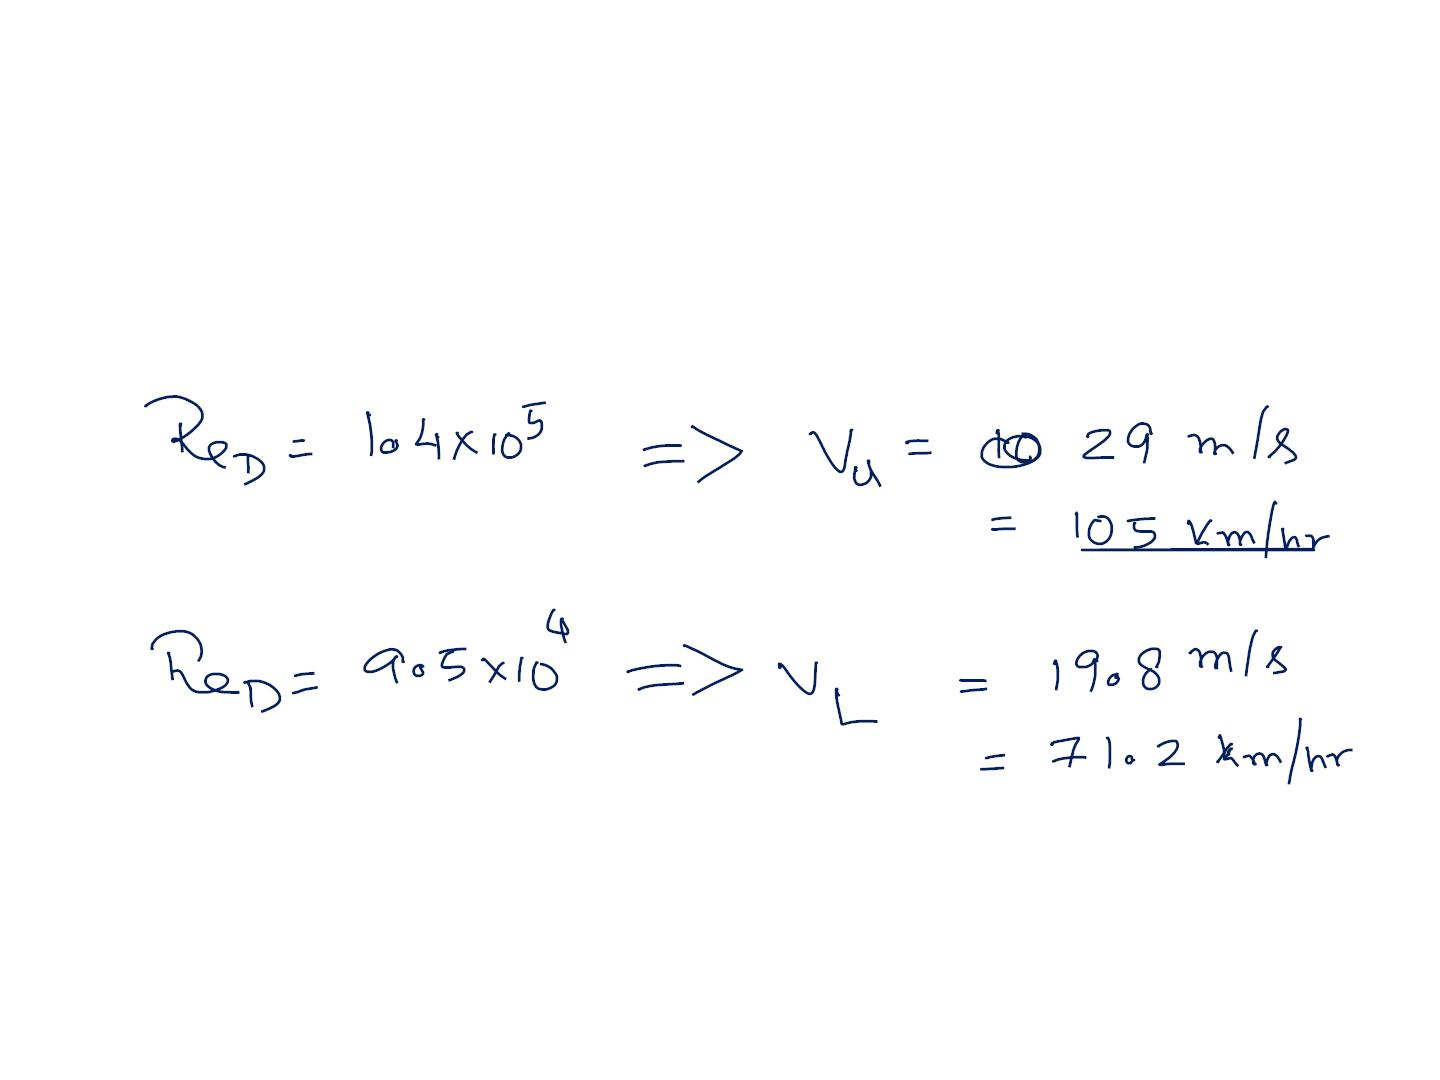 Re_D = 1.4×10^5 => V_u = 29 m/s
= 105 km/hr
Re_D = 9.5×10^4 => V_L = 19.8 m/s
= 71.2 km/hr